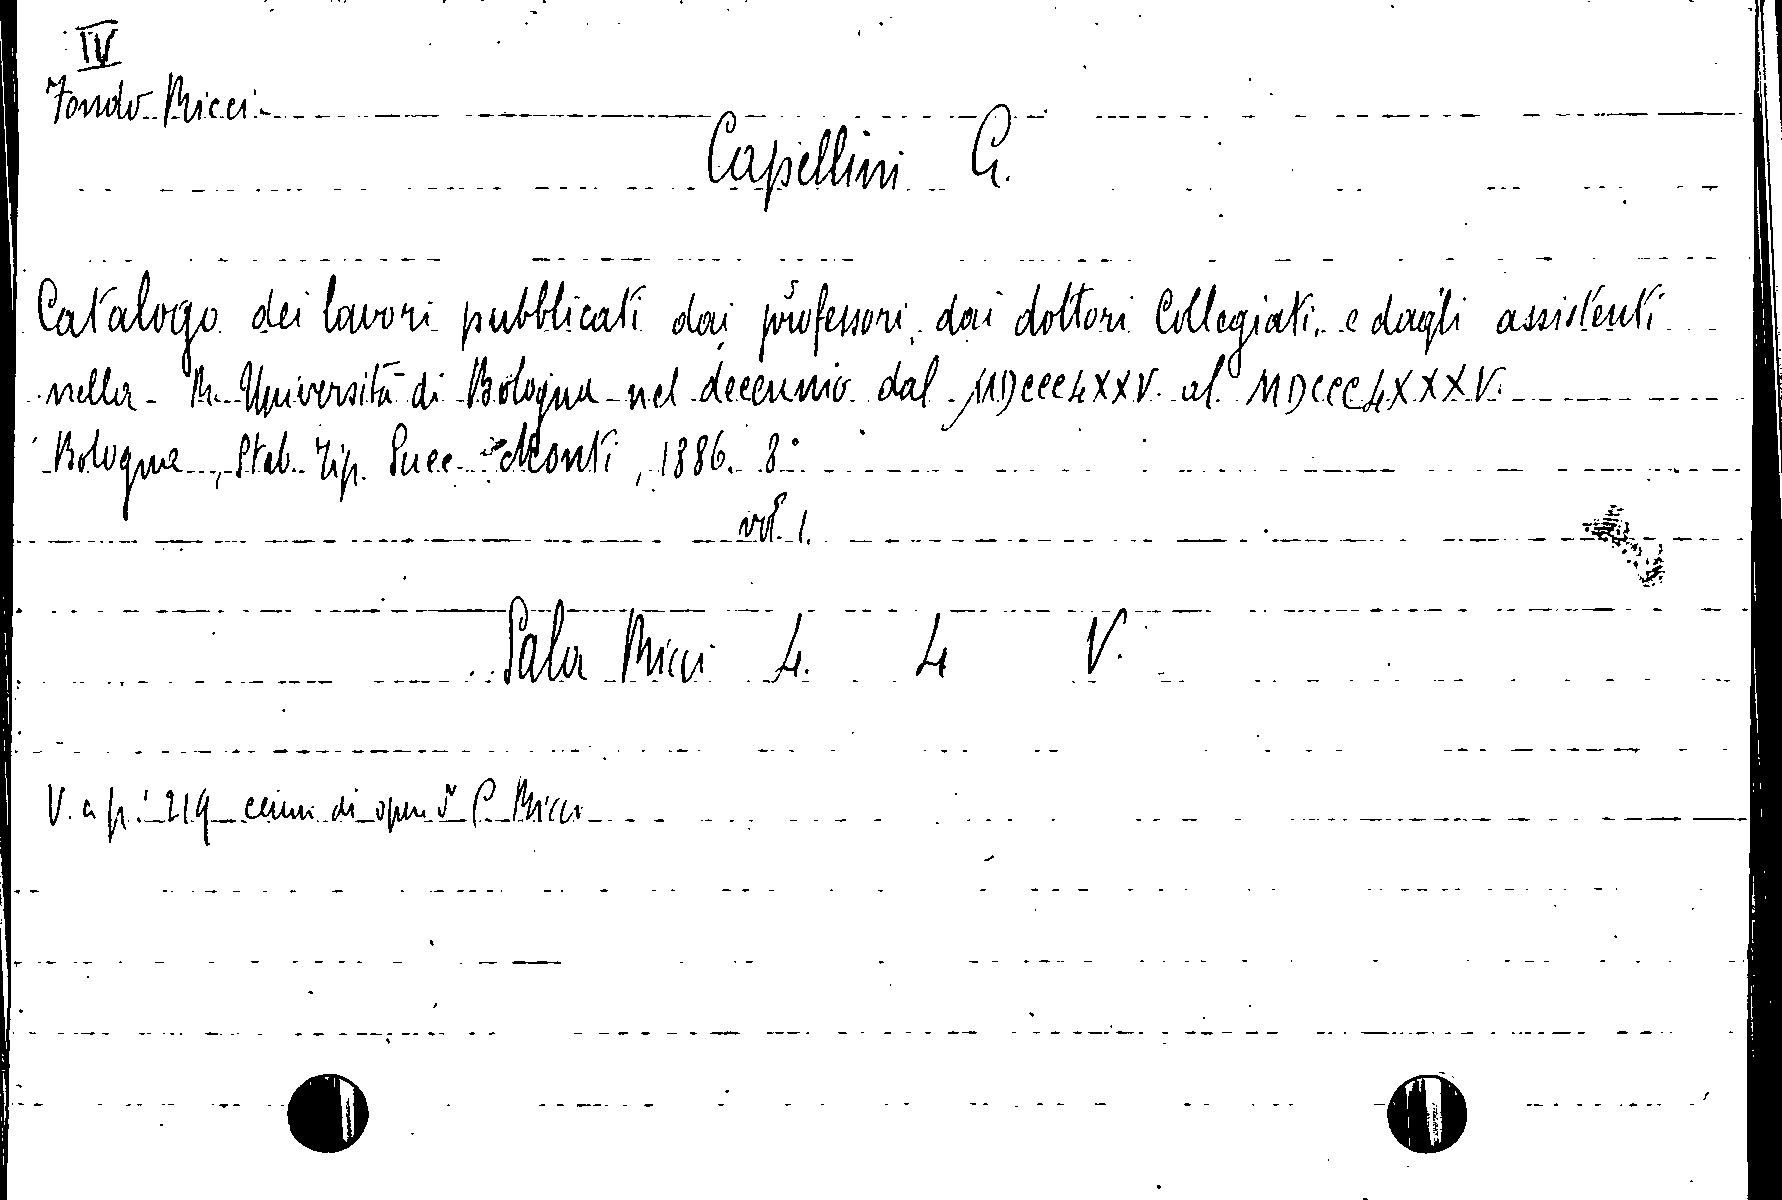 IV
Fondo Ricci
Capellini G.
Catalogo dei lavori pubblicati dai professori, dai dottori Collegiati, e dagli assistenti
nella R. Università di Bologna nel decennio dal MDCCCLXXV al MDCCCLXXXV.
Bologna, Stab. Tip. Succ. Monti, 1886. 8°
vol. 1.
Sala Ricci L. 4 V.
V. a p. 219 di opere C. Ricci